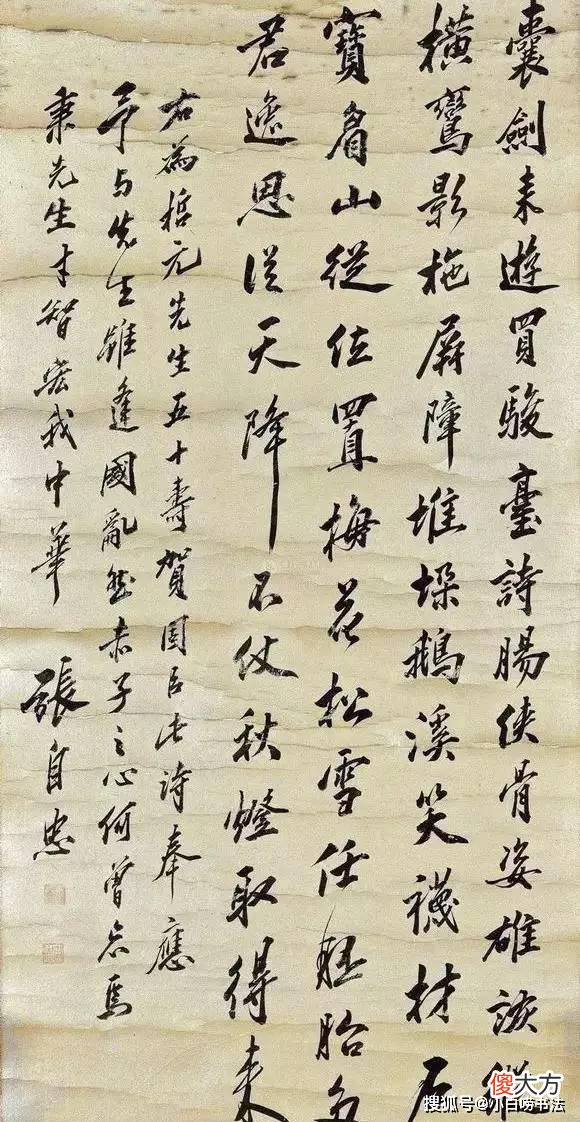 囊劍来遊買駿臺詩腸俠骨姿雄談從
橫鸞影拖屏障堆垛鵝溪笑襪材石
寶眉山從位置梅花松雪任胚胎多
君逸思從天降不仗秋燈取得来
右為哲元先生五十壽賀因占此詩奉應
予与先生雖逢國亂然赤子之心何曾忘焉
秉先生才智宏我中華
張自忠
傻大方
搜狐号@小白唠书法